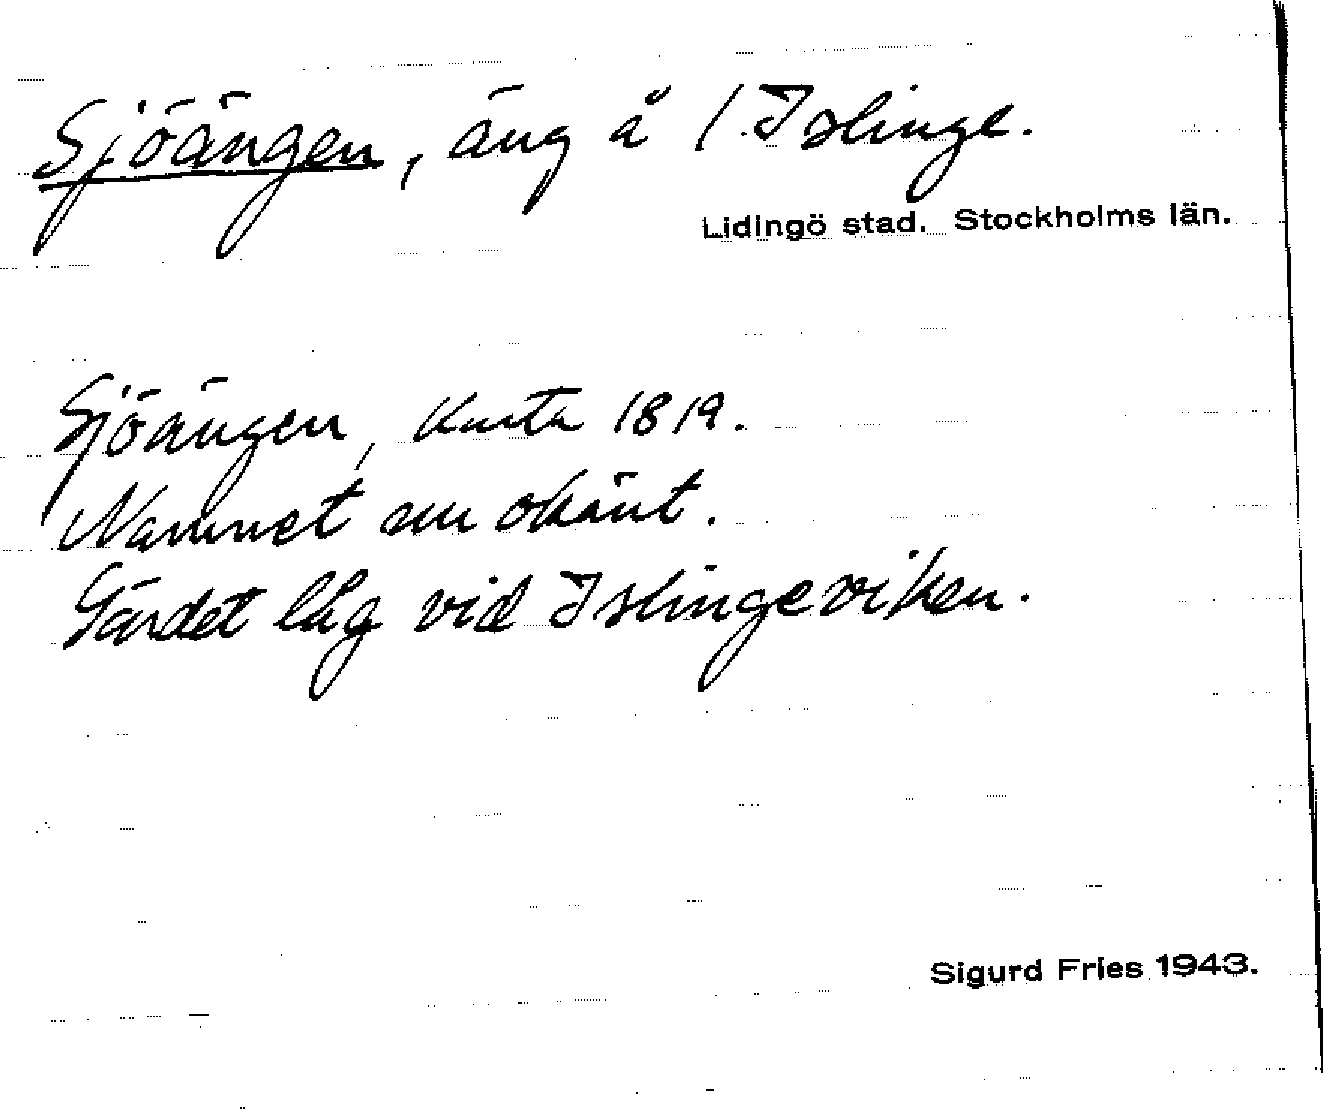 Sjöängen, äng å /. Islinge.
Lidingö stad. Stockholms län.
Sjöängen, Karta 1819.
Namnet nu okänt.
Gärdet låg vid Islingeviken.
Sigurd Fries 1943.